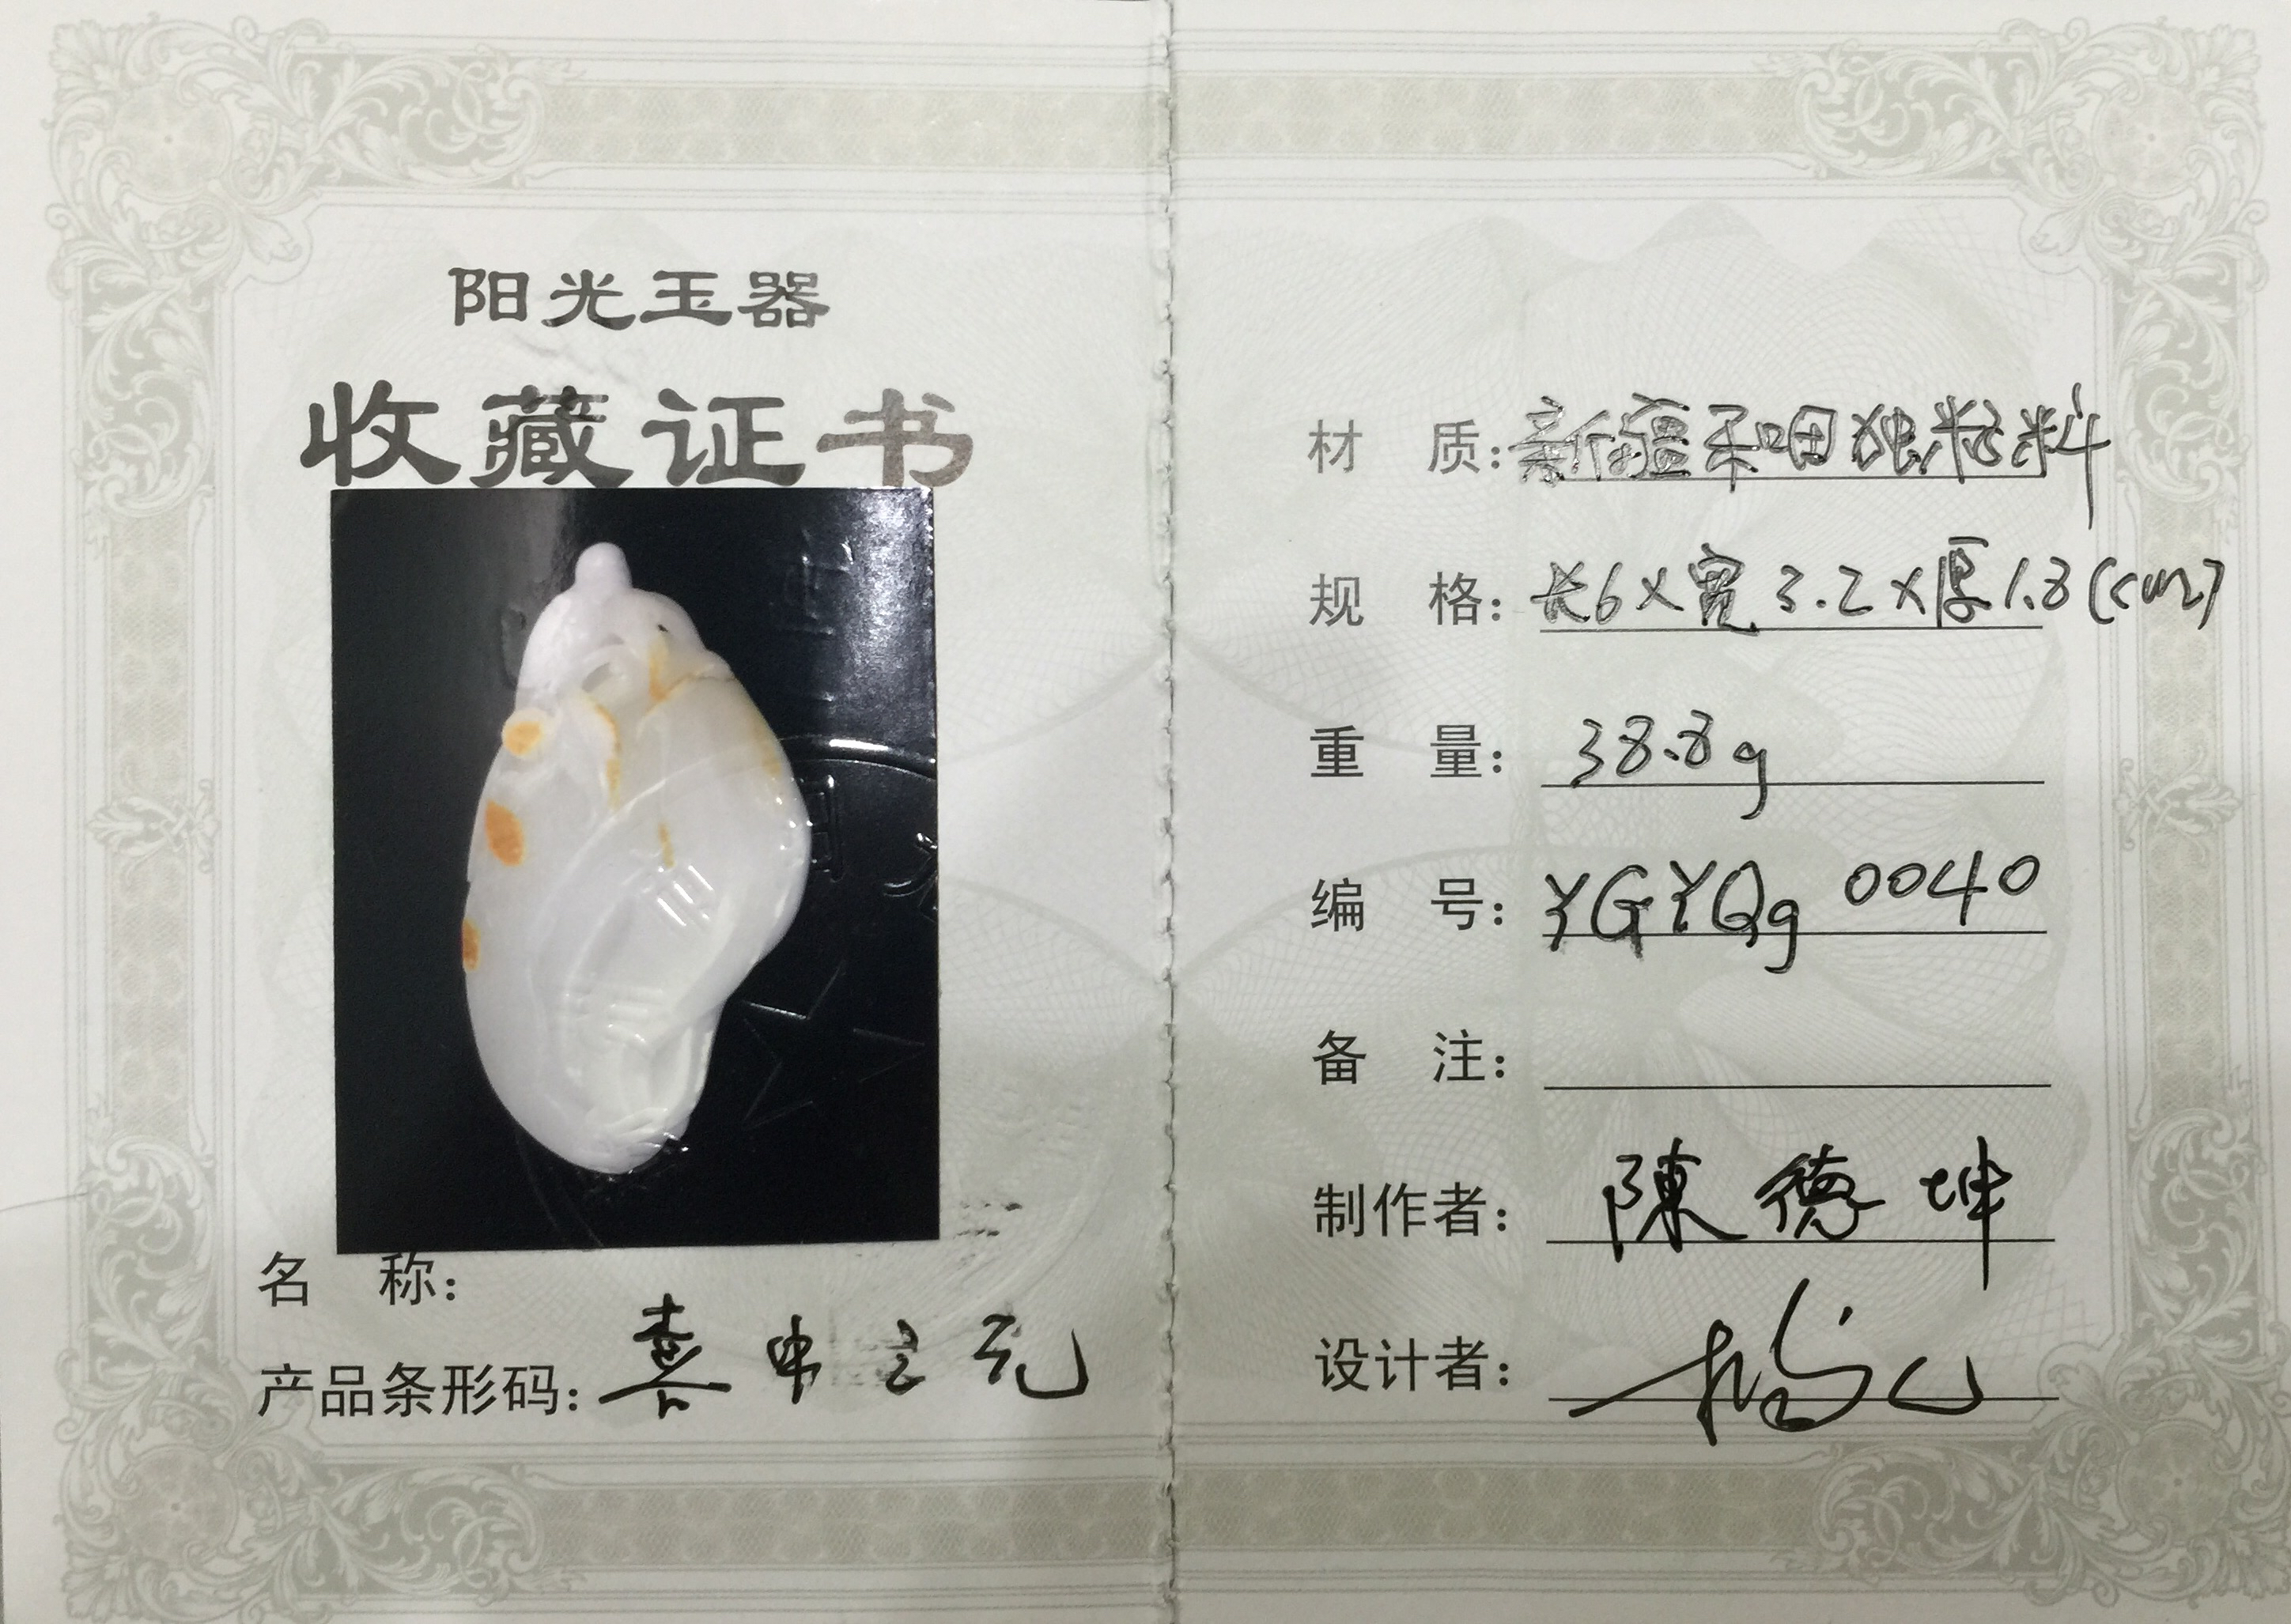 阳光玉器
收藏证书
名 称：
产品条形码：喜中
材 质：新疆和田独籽料
规 格：长6×宽3.2×厚1.8(cm)
重 量：38.8g
编 号：YGYQg 0040
备 注：
制作者：陳德坤
设计者：